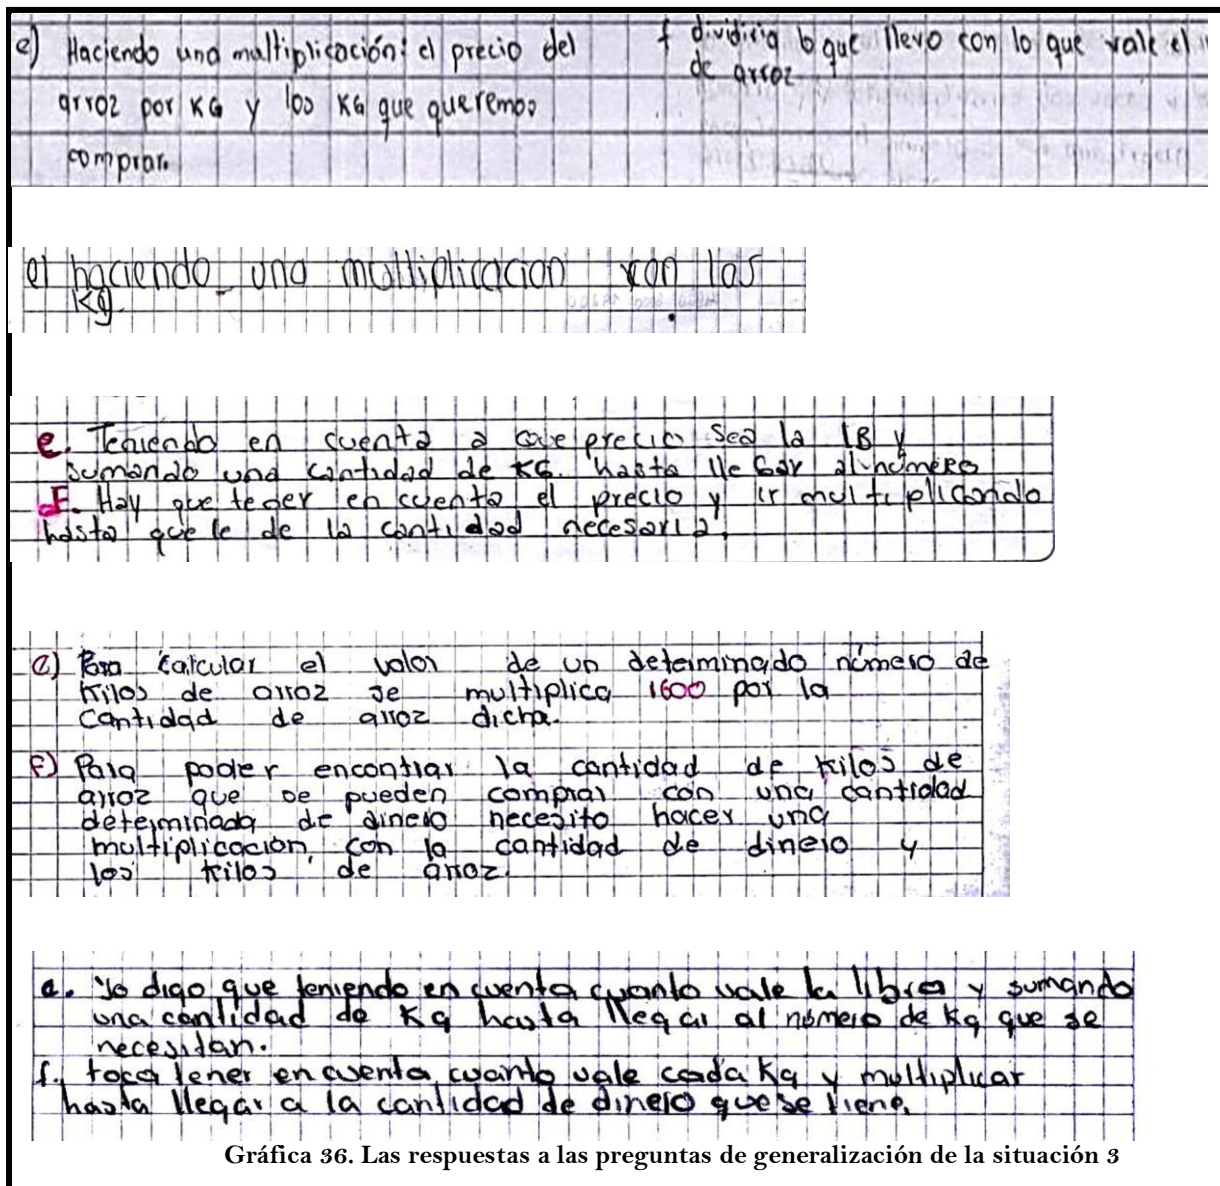 e) Haciendo una maltiplicación: el precio del
arroz por KG y los KG que queremos
comprar.
f dividiria lo que llevo con lo que vale el
de arroz
el haciendo una multiplicacion con los
Kg.
e. Teniendo en cuenta a precio sea la lB y
sumando una cantidad de KG. hasta lle Gar al número
F. Hay que tener en cuenta el precio y ir multiplicando
hasta que le de la cantidad necesaria.
e) Para calcular el valor de un determinado número de
kilos de arroz se multiplica 1600 por la
cantidad de arroz dicha.
F) Para poder encontrar la cantidad de kilos de
arroz que se pueden comprar con una cantidad
determinada de dinero necesito hacer una
multiplicacion con la cantidad de dinero y
los kilos de arroz.
e. Yo digo que teniendo en cuenta cuanto vale la libra y sumando
una cantidad de Kg hasta llegar al número de kg que se
necesitan.
f. toca tener en cuenta cuanto vale cada kg y multiplicar
hasta llegar a la cantidad de dinero que se tiene.
Gráfica 36. Las respuestas a las preguntas de generalización de la situación 3